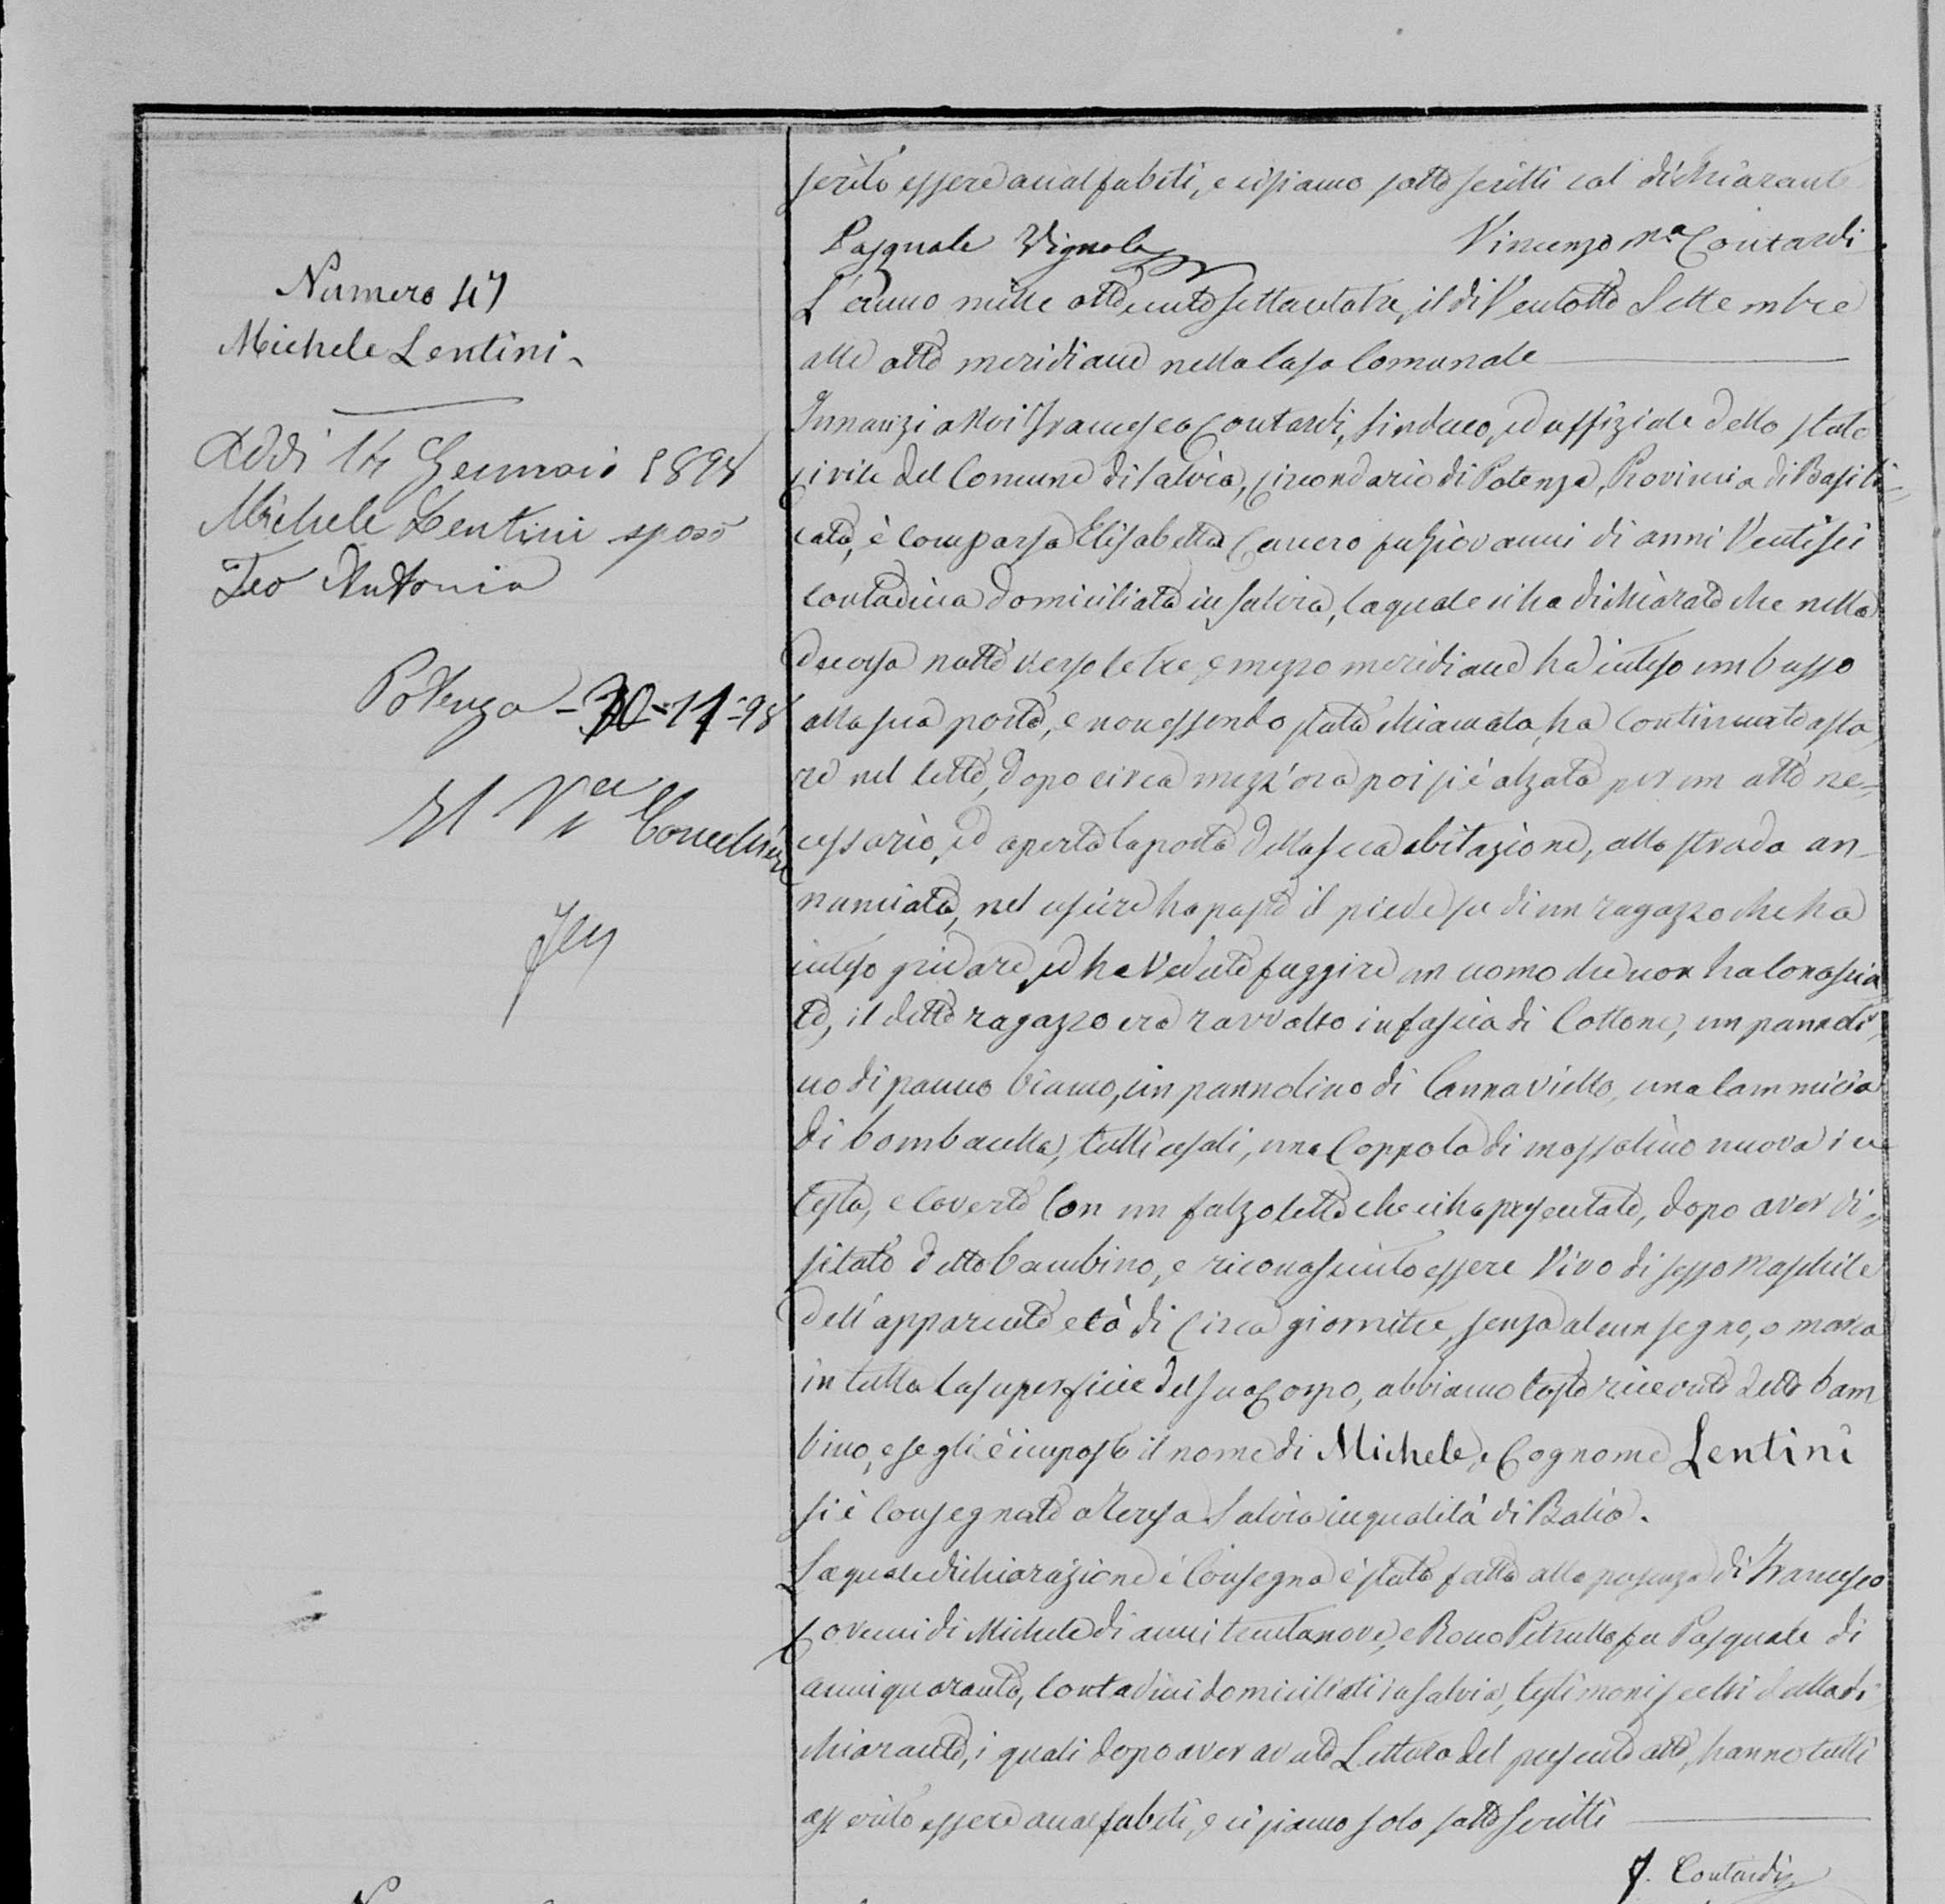 serito essere analfabeti, e ci siamo sottoscritti col dichiarante
Pasquale Vignola Vincenzo Mª Contardi
Numero 47
Michele Lentini
Addì 14 Gennaio 1898
Michele Lentini sposò
Teo Antonia
Potenza - 30-11-98
Il Vce Cancelliere
L'anno mille ottocento settantatre, il dì Ventotto Settembre
alle otto meridiane nella Casa Comunale
Innanzi a Noi Francesco Contardi, Sindaco, ed uffiziale dello stato
civile del Comune di Salvia, Circondario di Potenza, Provincia di Basili-
cata, è comparsa Elisabetta fu Giovanni di anni Ventisei
contadina domiciliata in Salvia, la quale ci ha dichiarato che nella
scorsa notte verso le tre, e mezzo meridiane ha inteso un busso
alla sua porta, e non essendo stata chiamata, ha continuato a sta
re nel letto, dopo circa mezz'ora poi si è alzata per un atto ne-
cessario, ed aperta la porta della sua abitazione, alla strada an-
nunciata, nel uscire ha posto il piede su di un ragazzo che ha
inteso gridare, ed ha veduto fuggire un uomo che non ha conoscia
to, il detto ragazzo era ravvolto in fascia di Cottone, un pannoli,
no di panno bianco, un pannolino di Cannaviello, una Cammicia
di bombacella, tutti usati, una Coppola di mossolino nuova in
testa, e coverto Con un falzoletto che ci ha presentato, dopo aver vi,,
sitato detto bambino, e riconosciuto essere Vivo di sesso Maschile
dell'apparente età di Circa giorni tre, senza alcun segno, o marca
in tutta la superficie del suo Corpo, abbiamo tosto ricevuto detto bam
bino, e se gli è imposto il nome di Michele, e Cognome Lentini
si è Consegnato a Teresa Salvia in qualità di Balia.
La quale dichiarazione e Consegna è stata fatta alla presenza di Francesco
di Michele di anni trentanove, e Rocco Petrullo fu Pasquale di
anni quaranta, Contadini domiciliati in Salvia, testimoni scelti dalla di
chiarante, i quali dopo aver avuto Lettura del presente atto, hanno tutti
asserito essere analfabeti, e ci siamo solo sottoscritti
F. Contardi